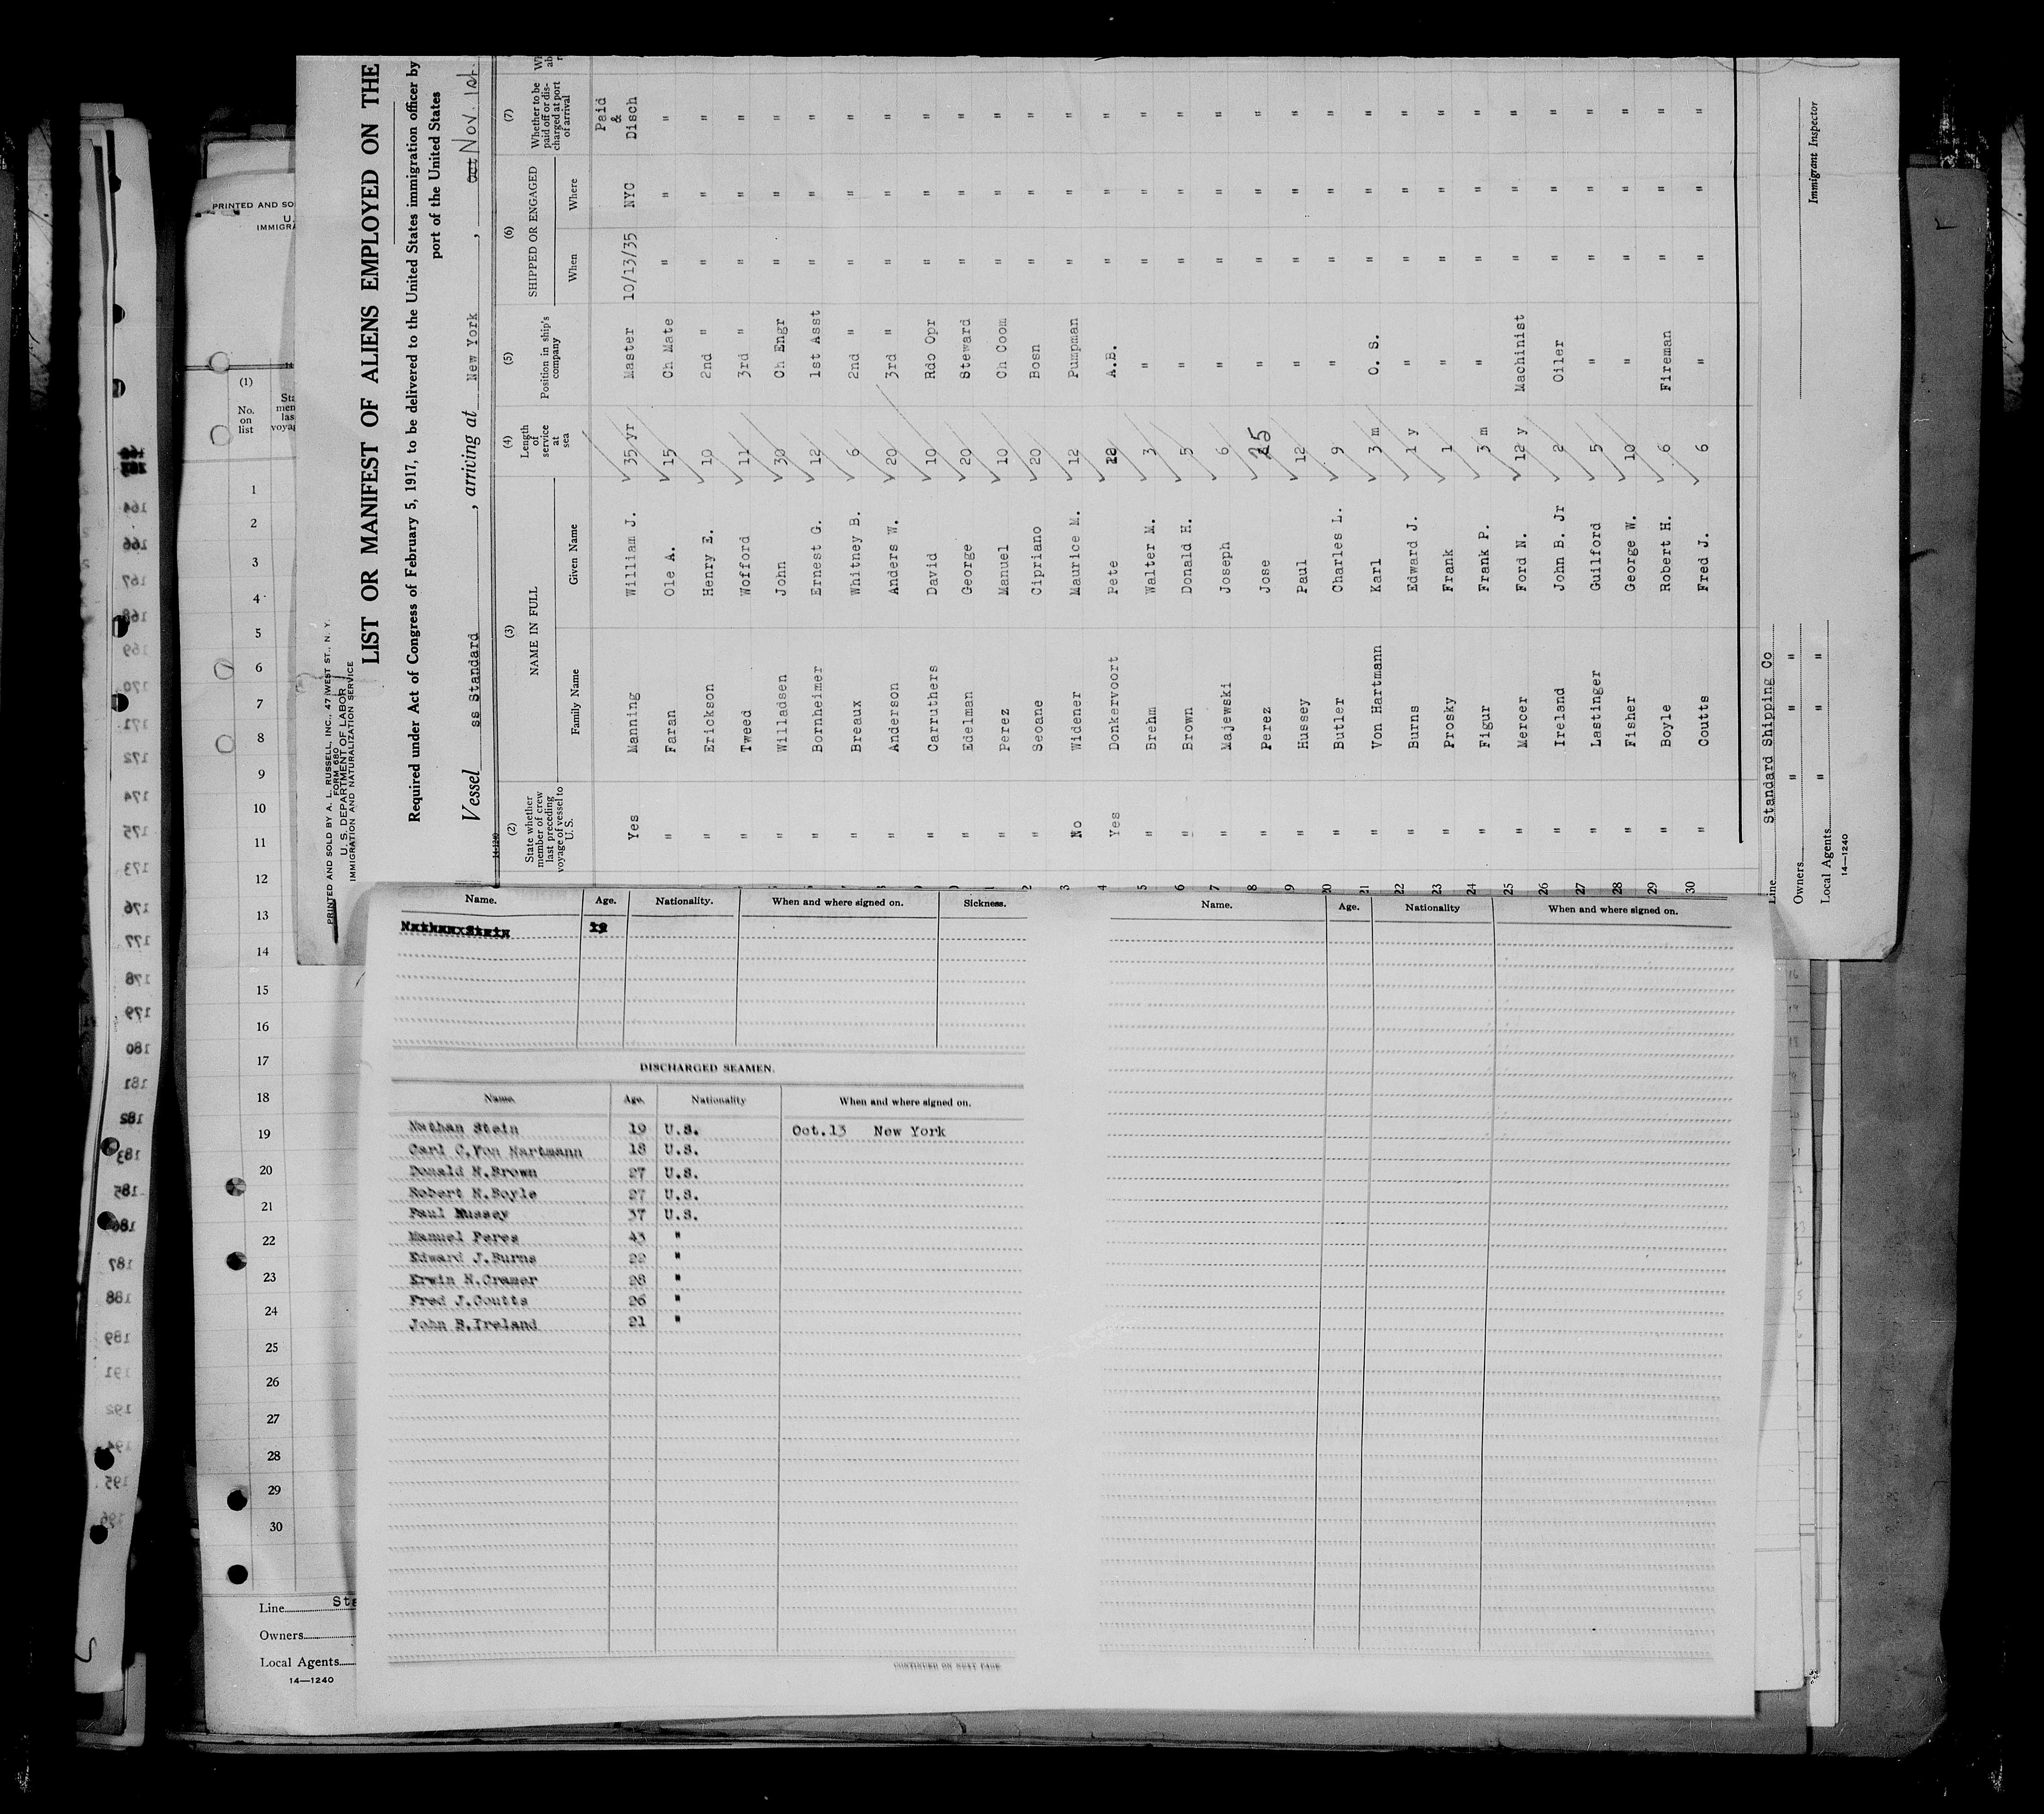 PRINTED AND SOLD BY A. L. RUSSELL, INC., 47 WEST ST., N. Y.
FORM 680
U. S. DEPARTMENT OF LABOR
IMMIGRATION AND NATURALIZATION SERVICE
LIST OR MANIFEST OF ALIENS EMPLOYED ON THE
Required under Act of Congress of February 5, 1917, to be delivered to the United States immigration officer by
port of the United States
Vessel ss Standard , arriving at New York , Oct Nov. 1st.
14-1240
(2) (3) (4) (5) (6) (7)
State whether member of crew last preceding voyage of vessel to U. S. NAME IN FULL Length of service at sea Position in ship's company SHIPPED OR ENGAGED Whether to be paid off or discharged at port of arrival
Family Name Given Name When Where
Yes Manning William J. 35 yr Master 10/13/35 NYC Paid & Disch
" Faran Ole A. 15 Ch Mate " " "
" Erickson Henry E. 10 2nd " " " "
" Tweed Wofford 11 3rd " " " "
" Willadsen John 30 Ch Engr " " "
" Bornheimer Ernest G. 12 1st Asst " " "
" Breaux Whitney B. 6 2nd " " " "
" Anderson Anders W. 20 3rd " " " "
" Carruthers David 10 Rdo Opr " " "
" Edelman George 20 Steward " " "
" Perez Manuel 10 Ch Coom " " "
2 " Seoane Cipriano 20 Bosn " " "
3 No Widener Maurice M. 12 Pumpman " " "
4 Yes Donkervoort Pete A.B. " " "
5 " Brehm Walter M. 3 " " " "
6 " Brown Donald H. 5 " " " "
7 " Majewski Joseph 6 " " " "
8 " Perez Jose 25 " " " "
9 " Hussey Paul 12 " " " "
20 " Butler Charles L. 9 " " " "
21 " Von Hartmann Karl 3 m O. S. " " "
22 " Burns Edward J. 1 y " " " "
23 " Prosky Frank 1 " " " "
24 " Figur Frank P. 3 m " " " "
25 " Mercer Ford N. 12 y Machinist " " "
26 " Ireland John B. Jr 2 Oiler " " "
27 " Lastinger Guilford 5 " " " "
28 " Fisher George W. 10 " " " "
29 " Boyle Robert H. 6 Fireman " " "
30 " Coutts Fred J. 6 " " " "
Line Standard Shipping Co
Owners " " "
Local Agents " " "
14—1240
Immigrant Inspector
PRINTED AND SO
U.
IMMIGRA
(1)
No. on list
1
2
3
4
5
6
7
8
9
10
11
12
13
14
15
16
17
18
19
20
21
22
23
24
25
26
27
28
29
30
Line Sta
Owners
Local Agents
14—1240
Name. Age. Nationality. When and where signed on. Sickness.
Nathan Stein 19
DISCHARGED SEAMEN.
Name. Age. Nationality When and where signed on.
Nathan Stein 19 U.S. Oct.13 New York
Carl C.Von Hartmann 18 U.S.
Donald H.Brown 27 U.S.
Robert H.Boyle 27 U.S.
Paul Hussey 37 U.S.
Manuel Peres 43 "
Edward J.Burns 22 "
Erwin H.Cramer 28 "
Fred J.Coutts 26 "
John B.Ireland 21 "
CONTINUED ON NEXT PAGE
Name. Age. Nationality When and where signed on.
164
166
167
168
169
170
171
172
174
175
173
176
177
178
179
180
181
182
183
185
186
187
188
189
191
192
194
195
196